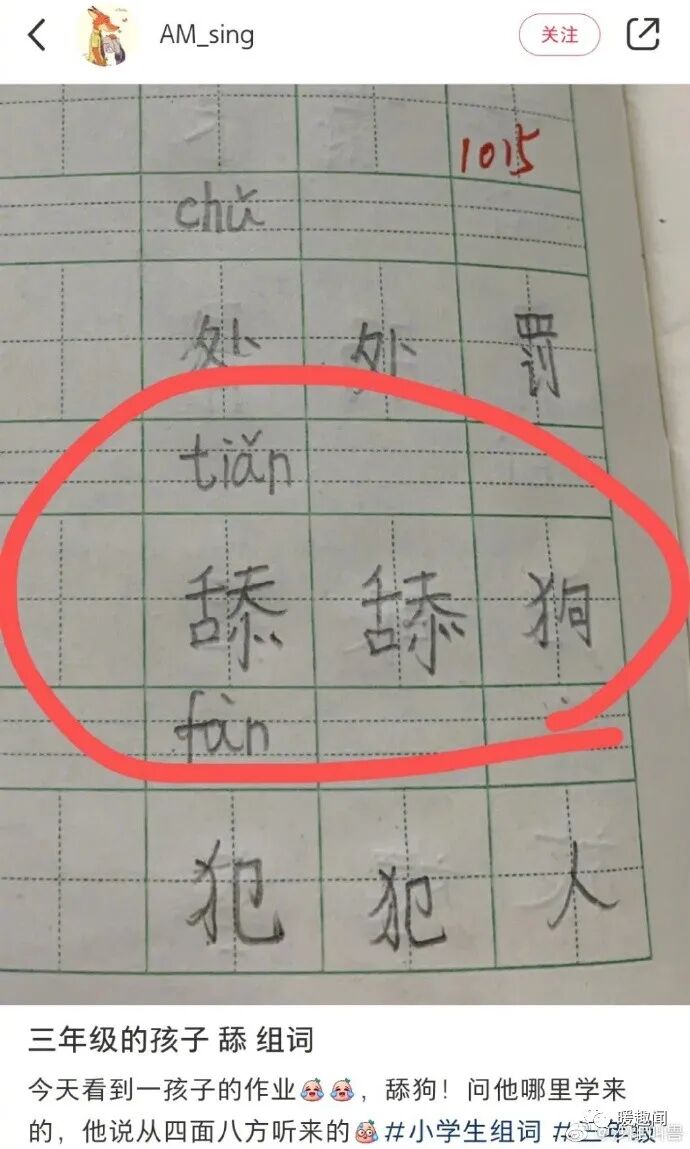 AM_sing
关注
1015
chǔ
处 处 罚
tiǎn
舔 舔 狗
fàn
犯 犯 人
三年级的孩子 舔 组词
今天看到一孩子的作业，舔狗！问他哪里学来
的，他说从四面八方听来的 #小学生组词 #三年级
暖趣闻